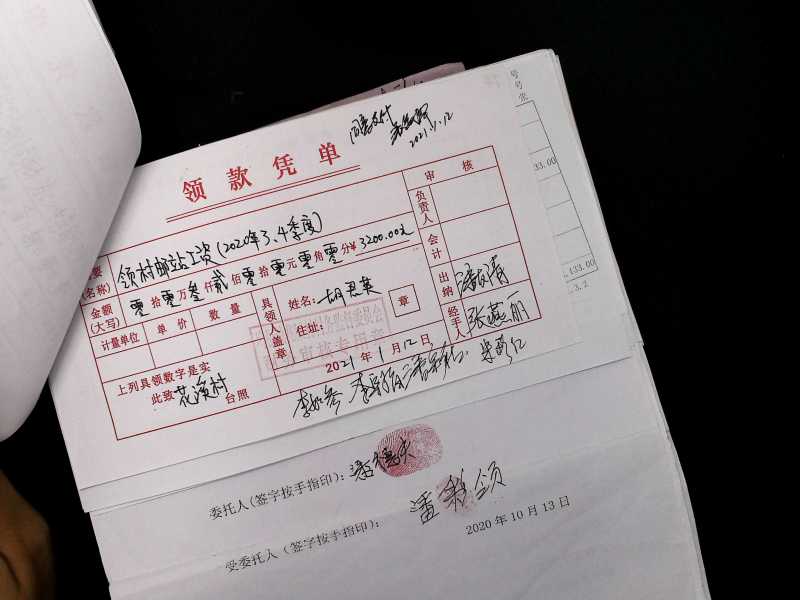 同意支付
2021.1.12
领款凭单
摘要(名称) 领村邮站工资(2020年3、4季度) 审核
负责人
金额(大写) 零拾零万叁仟贰佰零拾零元零角零分¥3200.00元
会计
计量单位 单价 数量 具领人盖章 姓名: 胡思英 章 出纳
住址:
审核专用章
2021年1月12日 经手人 张燕丽
上列具领数字是实
此致 花溪村 台照
委托人(签字按手指印):
受委托人(签字按手指印):
2020年10月13日
号
号
张
33.00
,433.00
3.2